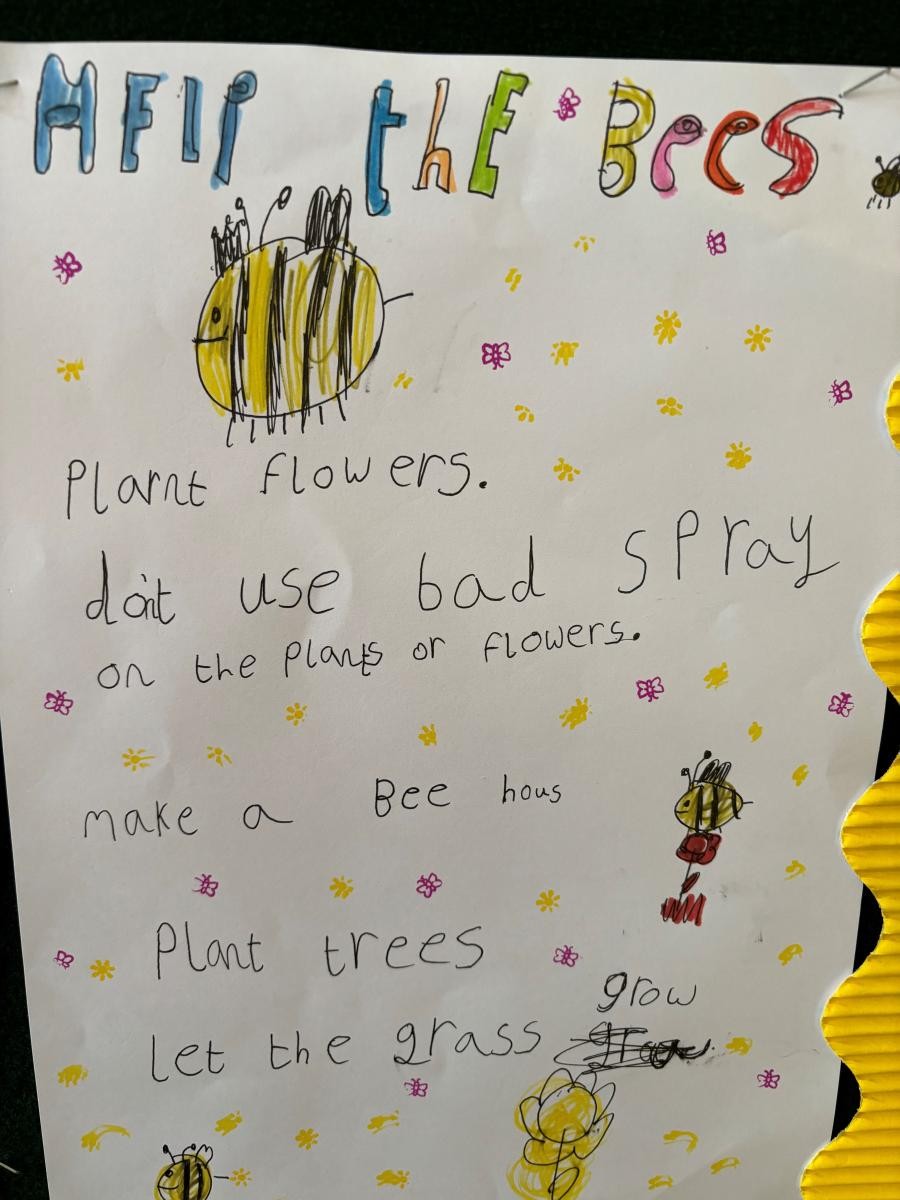 HElp thE Bees
Plarnt flowers.
don't use bad spray
on the plants or flowers.
make a Bee hous
Plant trees
grow
let the grass